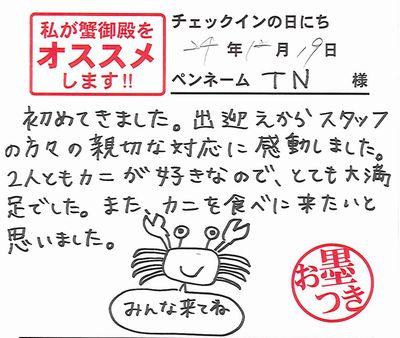 私が蟹御殿を
オススメ
します!!
チェックインの日にち
24年12月19日
ペンネーム TN 様
初めてきました。出迎えからスタッフ
の方々の親切な対応に感動しました。
2人ともカニが好きなので、とても大満
足でした。また、カニを食べに来たいと
思いました。
みんな来てね
お墨つき